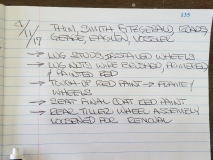 135
THOM, SMITH, FITZGERALD, ROADS,
GEORGE EAGLEN, VOSSLER
11/
17
→ LUG STUDS INSTALLED WHEELS
→ LUG NUTS WIRE BRUSHED, PRIMERED
& PAINTED RED
→ TOUCH-UP RED PAINT → FRAME &
WHEELS
→ SEAT FINAL COAT RED PAINT
→ REAR TILLER WHEEL ASSEMBLY
LOOSENED FOR REMOVAL